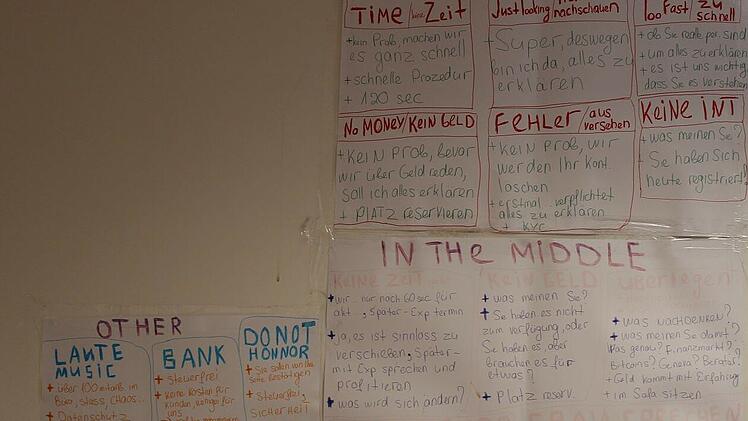 TIME / Zeit
+ kein Prob, machen wir
es ganz schnell
+ schnelle Prozedur
+ 120 sec
Just looking / nachschauen
+ Super, deswegen
bin ich da, alles zu
erklären
too Fast / zu
schnell
+ ob Sie reale per. sind
+ um alles zu erklären
+ es ist uns wichtig
dass Sie es verstehen
NO MONEY / KEIN GELD
+ KEIN PROB, bevor
wir über Geld reden,
soll ich alles erklären
+ PLATZ reservieren
FEHLER / aus
versehen
+ KEIN PROB, wir
werden Ihr Kont.
löschen
+ erstmal verpflichtet
alles zu erklären
+ KYC
KEINE INT
+ was meinen Sie?
- Sie haben sich
heute registriert!
IN THE MIDDLE
KEINE ZEIT
+ wir nur noch 60 sec für
akt, Später - Exp termin
+ ja, es ist sinnlos zu
verschieben, Später -
mit Exp sprechen und
profitieren
+ was wird sich ändern?
KEIN GELD
+ was meinen Sie?
+ Sie haben es nicht
zum verfügung, oder
Sie haben es aber
brauchen es für
etwas?
+ Platz reserv.
überlegen
+ was NACHDENKEN?
+ was meinen Sie damit?
Was genau? Finanzmarkt?
Bitcoins? Genera? Berater?
+ Geld kommt mit Erfahrung
- im Safa sitzen
OTHER
LAUTE
MUSIC
+ über 100 mitarb. im
Büro, stess, chaos...
+ Datenschutz
BANK
+ Steuerfrei
+ keine Kosten für
Kunden, wenige für
uns
DO NOT
HONNOR
+ Sie sollen von Ihr
Seite Bestätigen
+ Steuerfrei,
SICHERHEIT